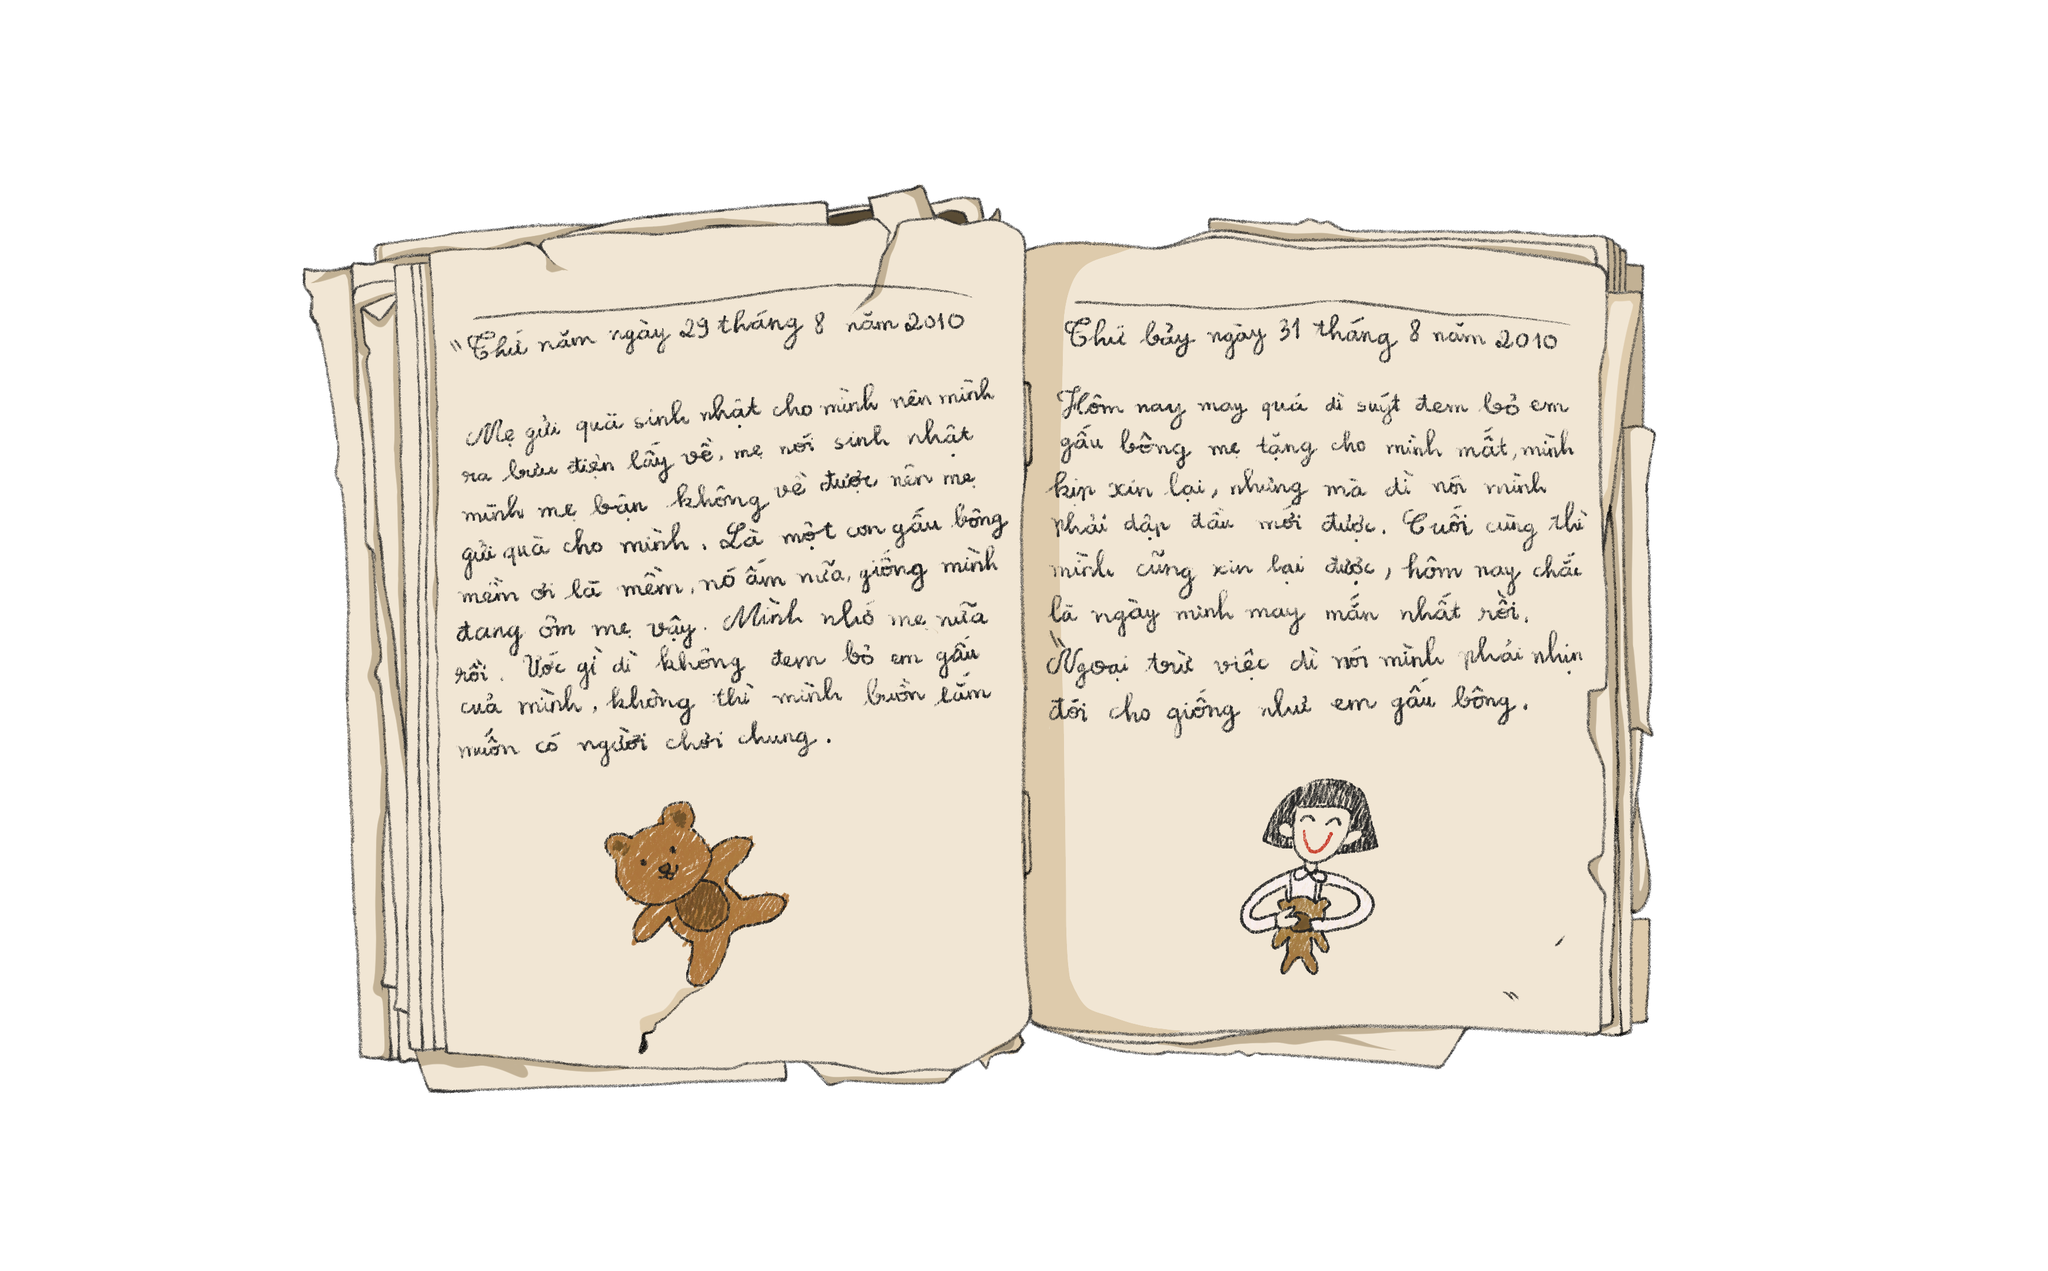 "Thứ năm ngày 29 tháng 8 năm 2010
Mẹ gửi quà sinh nhật cho mình nên mình
ra bưu điện lấy về, mẹ nói sinh nhật
mình mẹ bận không về được nên mẹ
gửi quà cho mình. Là một con gấu bông
mềm ơi là mềm, nó ấm nữa, giống mình
đang ôm mẹ vậy. Mình nhớ mẹ nữa
rồi. Ước gì dì không đem bỏ em gấu
của mình, không thì mình buồn lắm
muốn có người chơi chung.
Thứ bảy ngày 31 tháng 8 năm 2010
Hôm nay may quá dì suýt đem bỏ em
gấu bông mẹ tặng cho mình mất, mình
kịp xin lại, nhưng mà dì nói mình
phải dập đầu mới được. Cuối cùng thì
mình cũng xin lại được, hôm nay chắc
là ngày mình may mắn nhất rồi.
Ngoại trừ việc dì nói mình phải nhịn
đói cho giống như em gấu bông.
"